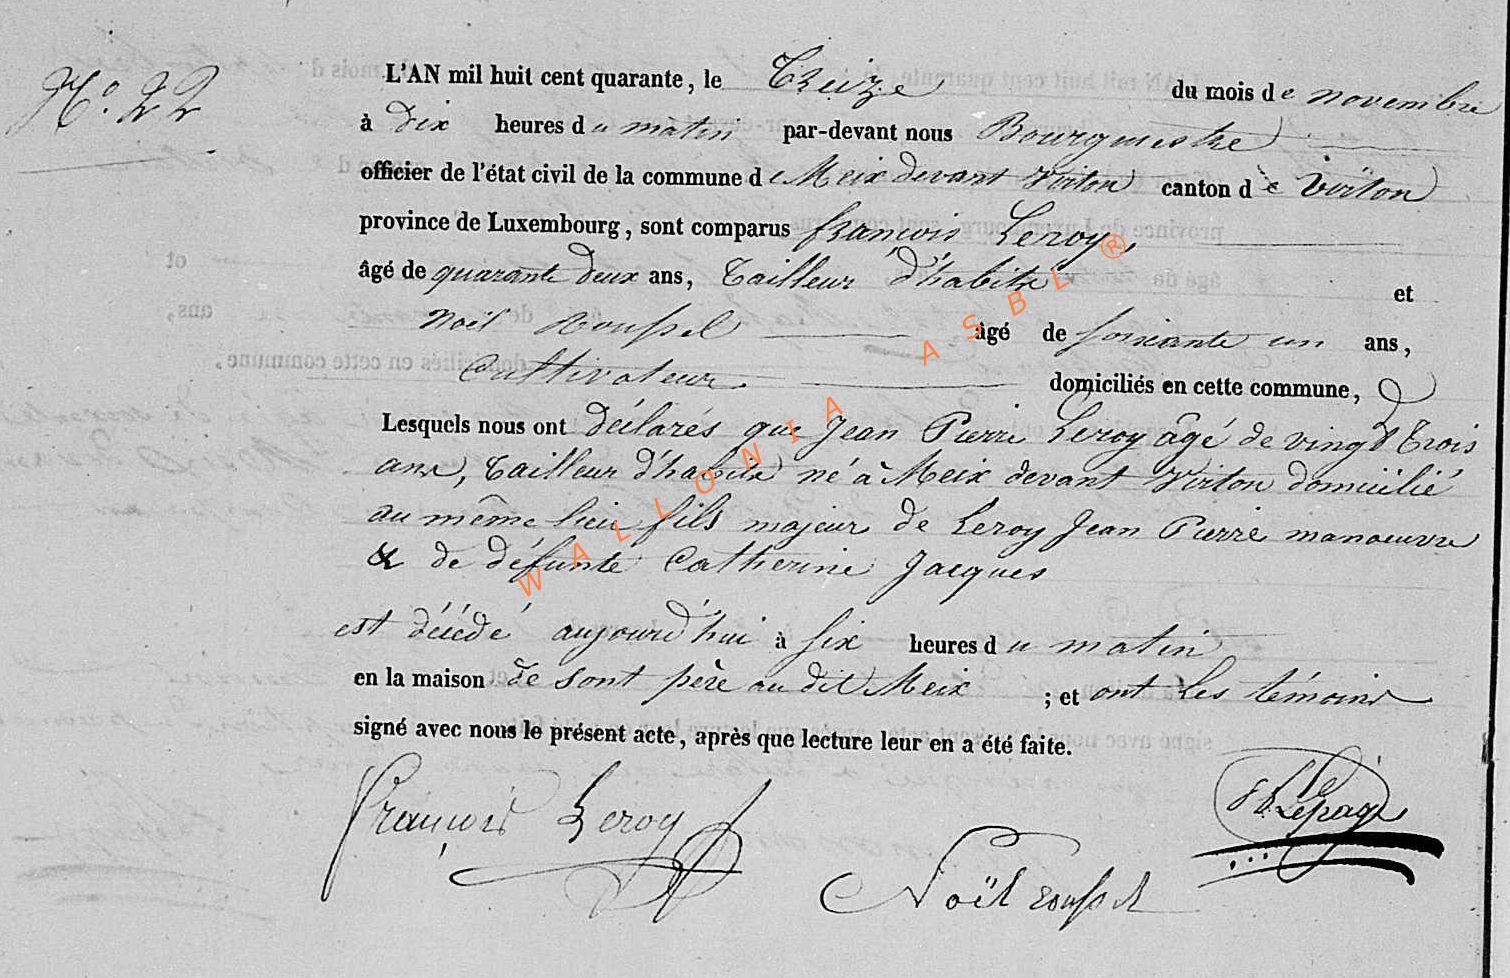 N° 22
L'AN mil huit cent quarante, le Treize du mois de novembre
à dix heures du matin par-devant nous Bourgmestre
officier de l'état civil de la commune de Meix devant Virton canton de Virton
province de Luxembourg, sont comparus françois Leroy,
âgé de quarante deux ans, Tailleur d'habits et
Noël Roussel âgé de soixante un ans,
Cultivateur domiciliés en cette commune,
Lesquels nous ont déclarés que Jean Pierre Leroy âgé de vingt Trois
ans, Tailleur d'habits né à Meix devant Virton domicilié
au même lieu fils majeur de Leroy Jean Pierre manoeuvre
& de défunte Catherine Jacques
est décédé aujourd'hui à six heures du matin
en la maison de sont père au dit Meix ; et ont les témoins
signé avec nous le présent acte, après que lecture leur en a été faite.
François Leroy
Lepage
Noël roussel
WALLONIA ASBL ®